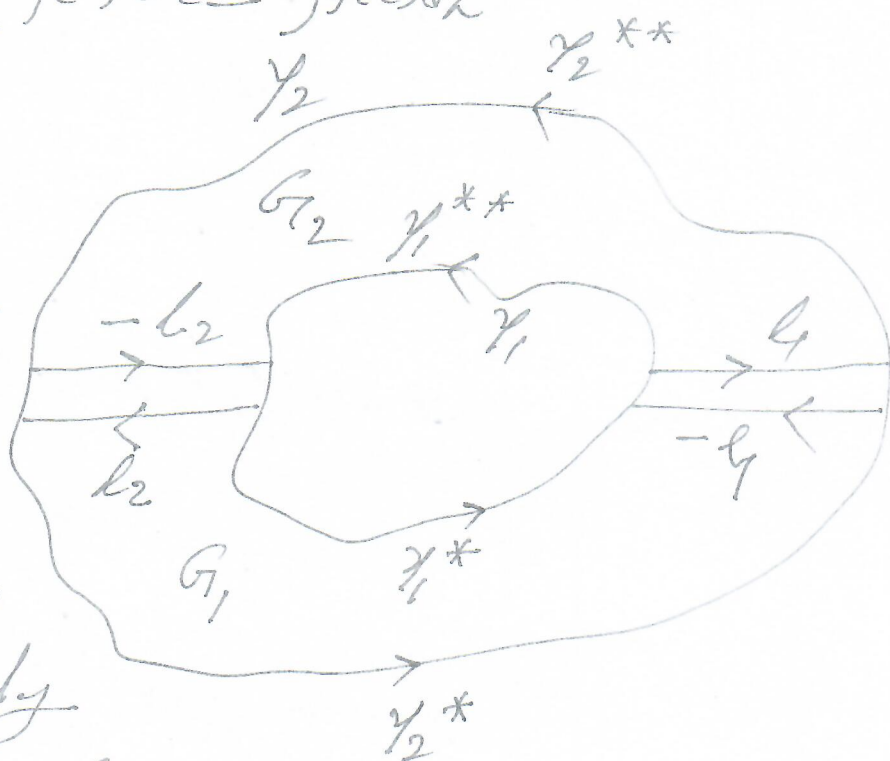 γ₂**
γ₂
G₂
γ₁**
γ₁
-l₂
l₁
l₂
-l₁
G₁
γ₁*
γ₂*